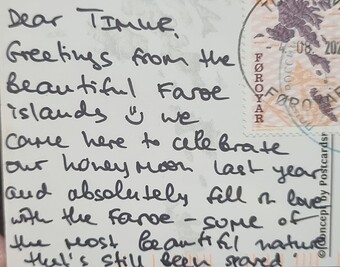 Dear TIMUR,
Greetings from the
beautiful Faroe
islands we
came here to celebrate
our honeymoon last year
and absolutely fell in love
with the Faroe - some of
the most beautiful nature
that's still been spared
FØROYAR
4.08.202
FØRO
©concept by Postcardsr